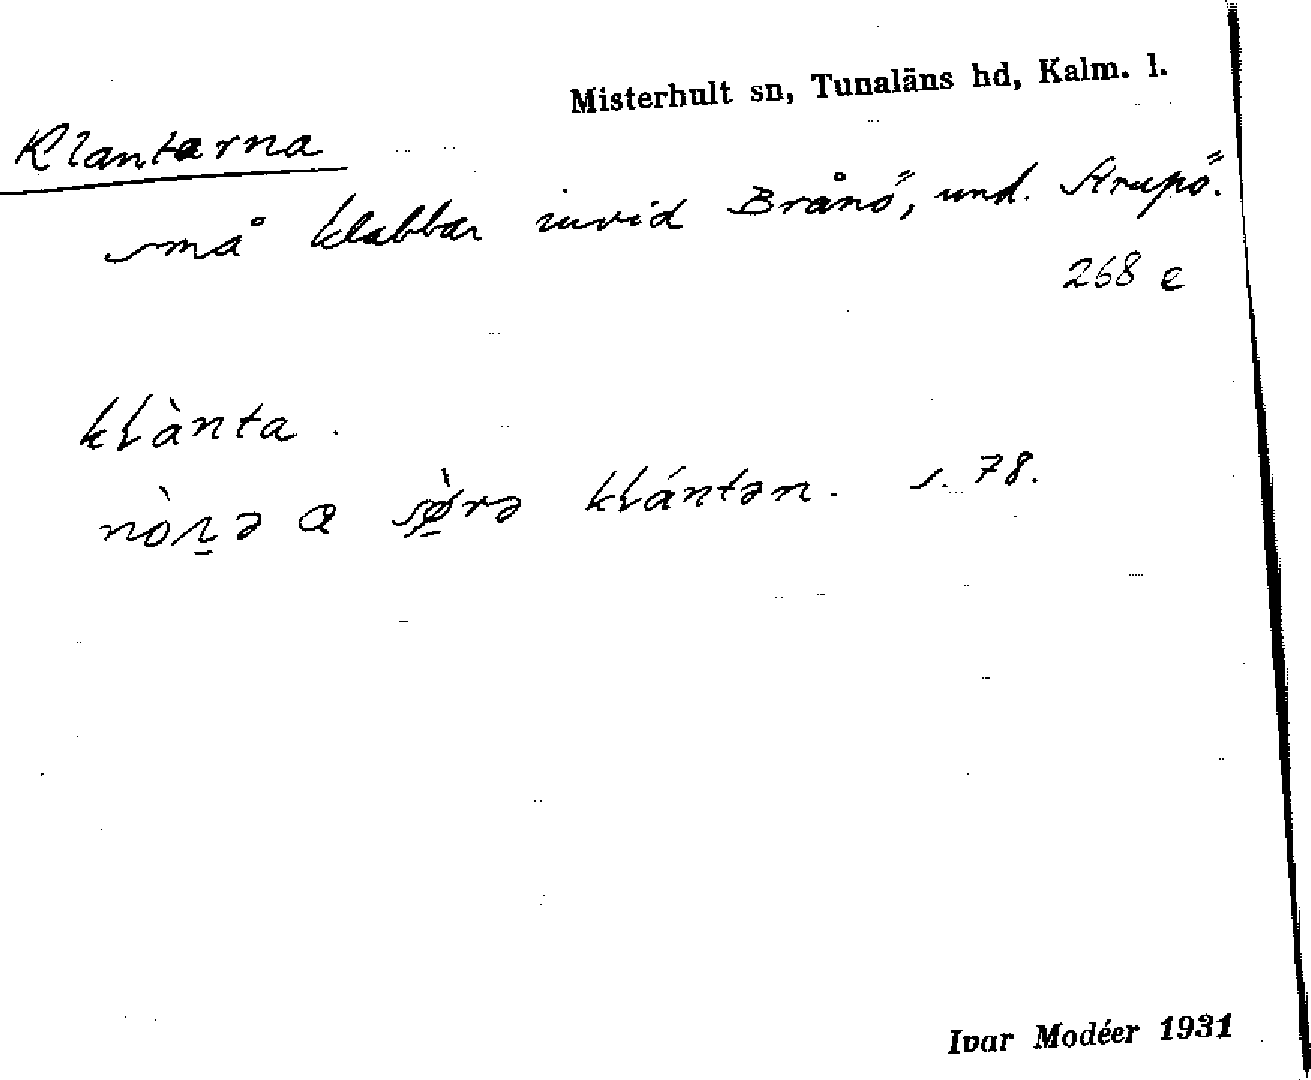 Misterhult sn, Tunaläns hd, Kalm. l.
Klantarna
små klabbar invid Brånö, und. Strupö.
268 e
klànta.
nòṟə a sø̱̀rə klántən. s. 78.
Ivar Modéer 1931